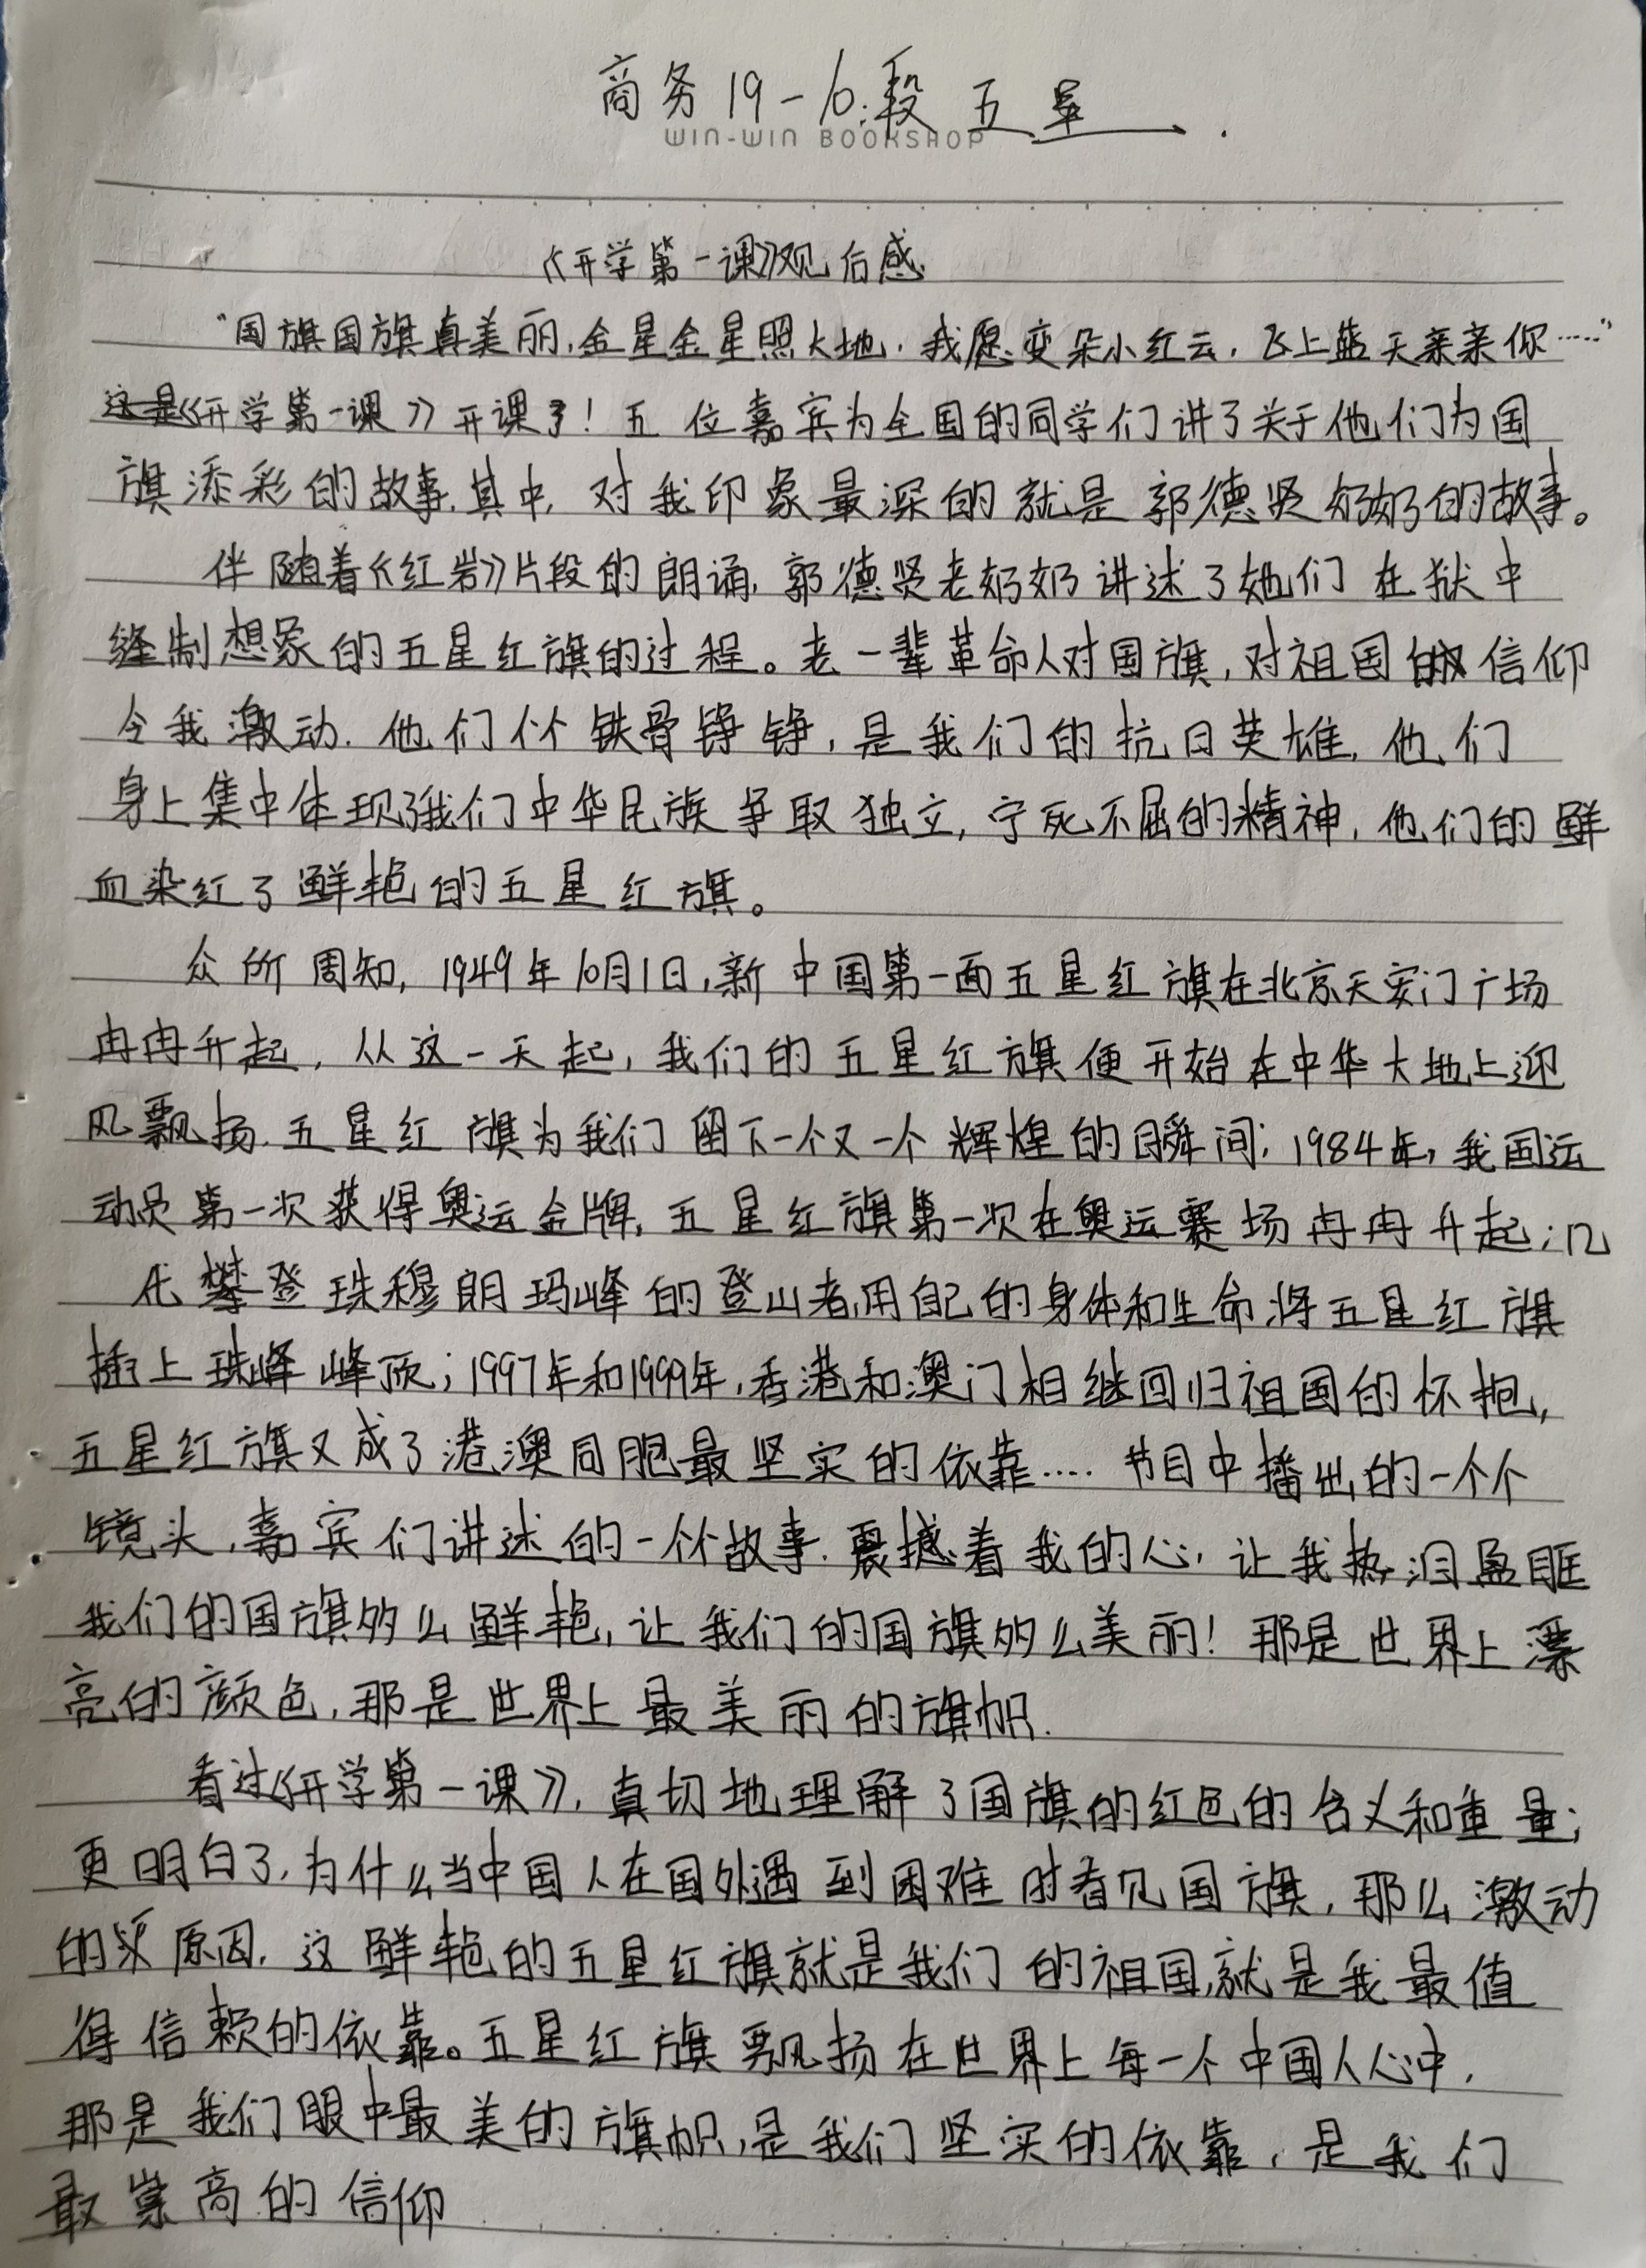 商务19-10.段五星
WIN-WIN BOOKSHOP
《开学第一课》观后感
“国旗国旗真美丽,金星金星照大地,我愿变朵小红云,飞上蓝天亲亲你……”
《开学第一课》开课了!五位嘉宾为全国的同学们讲了关于他们为国
旗添彩的故事.其中,对我印象最深的就是郭德贤奶奶的故事。
伴随着《红岩》片段的朗诵,郭德贤老奶奶讲述了她们在狱中
缝制想象的五星红旗的过程。老一辈革命人对国旗,对祖国的信仰
令我激动.他们个个铁骨铮铮,是我们的抗日英雄,他们
身上集中体现了我们中华民族争取独立,宁死不屈的精神,他们的鲜
血染红了鲜艳的五星红旗。
众所周知,1949年10月1日,新中国第一面五星红旗在北京天安门广场
冉冉升起,从这一天起,我们的五星红旗便开始在中华大地上迎
风飘扬.五星红旗为我们留下一个又一个辉煌的瞬间;1984年,我国运
动员第一次获得奥运金牌,五星红旗第一次在奥运赛场冉冉升起;几
代攀登珠穆朗玛峰的登山者,用自己的身体和生命将五星红旗
插上珠峰峰顶;1997年和1999年,香港和澳门相继回归祖国的怀抱,
五星红旗又成了港澳同胞最坚实的依靠....节目中播出的一个个
镜头,嘉宾们讲述的一个个故事.震撼着我的心,让我热泪盈眶
我们的国旗多么鲜艳,让我们的国旗多么美丽!那是世界上漂
亮的颜色,那是世界上最美丽的旗帜.
看过《开学第一课》,真切地理解了国旗的红色的含义和重量;
更明白了,为什么当中国人在国外遇到困难时看见国旗,那么激动
的原因.这鲜艳的五星红旗就是我们的祖国,就是我最值
得信赖的依靠。五星红旗飘扬在世界上每一个中国人心中,
那是我们眼中最美的旗帜,是我们坚实的依靠,是我们
最崇高的信仰